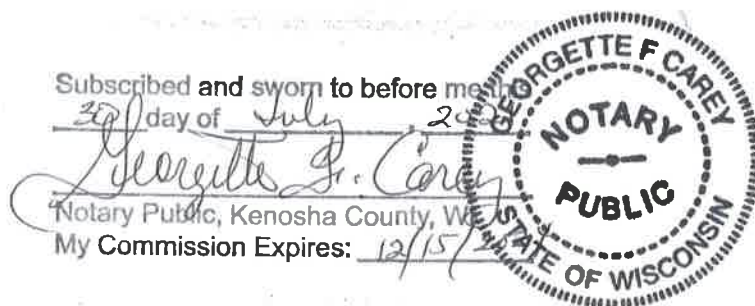 Subscribed and sworn to before me
30 day of July
Georgette F. Carey
Notary Public, Kenosha County,
My Commission Expires: 12/15/
GEORGETTE F CAREY
NOTARY
PUBLIC
STATE OF WISCONSIN